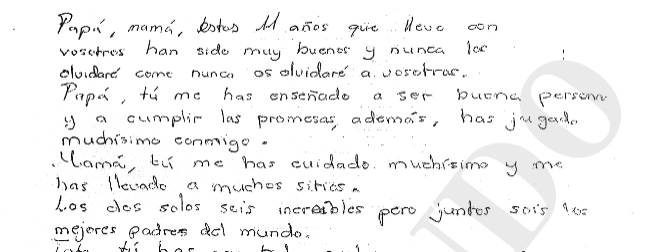 Papá, mamá, estos 11 años que llevo con
vosotros han sido muy buenos y nunca los
olvidaré como nunca os olvidaré a vosotros.
Papá, tú me has enseñado a ser buena persona
y a cumplir las promesas, además, has jugado
muchísimo conmigo.
Mamá, tú me has cuidado muchísimo y me
has llevado a muchos sitios.
Los dos solos sois increíbles pero juntos sois los
mejores padres del mundo.
tú has
UNDO